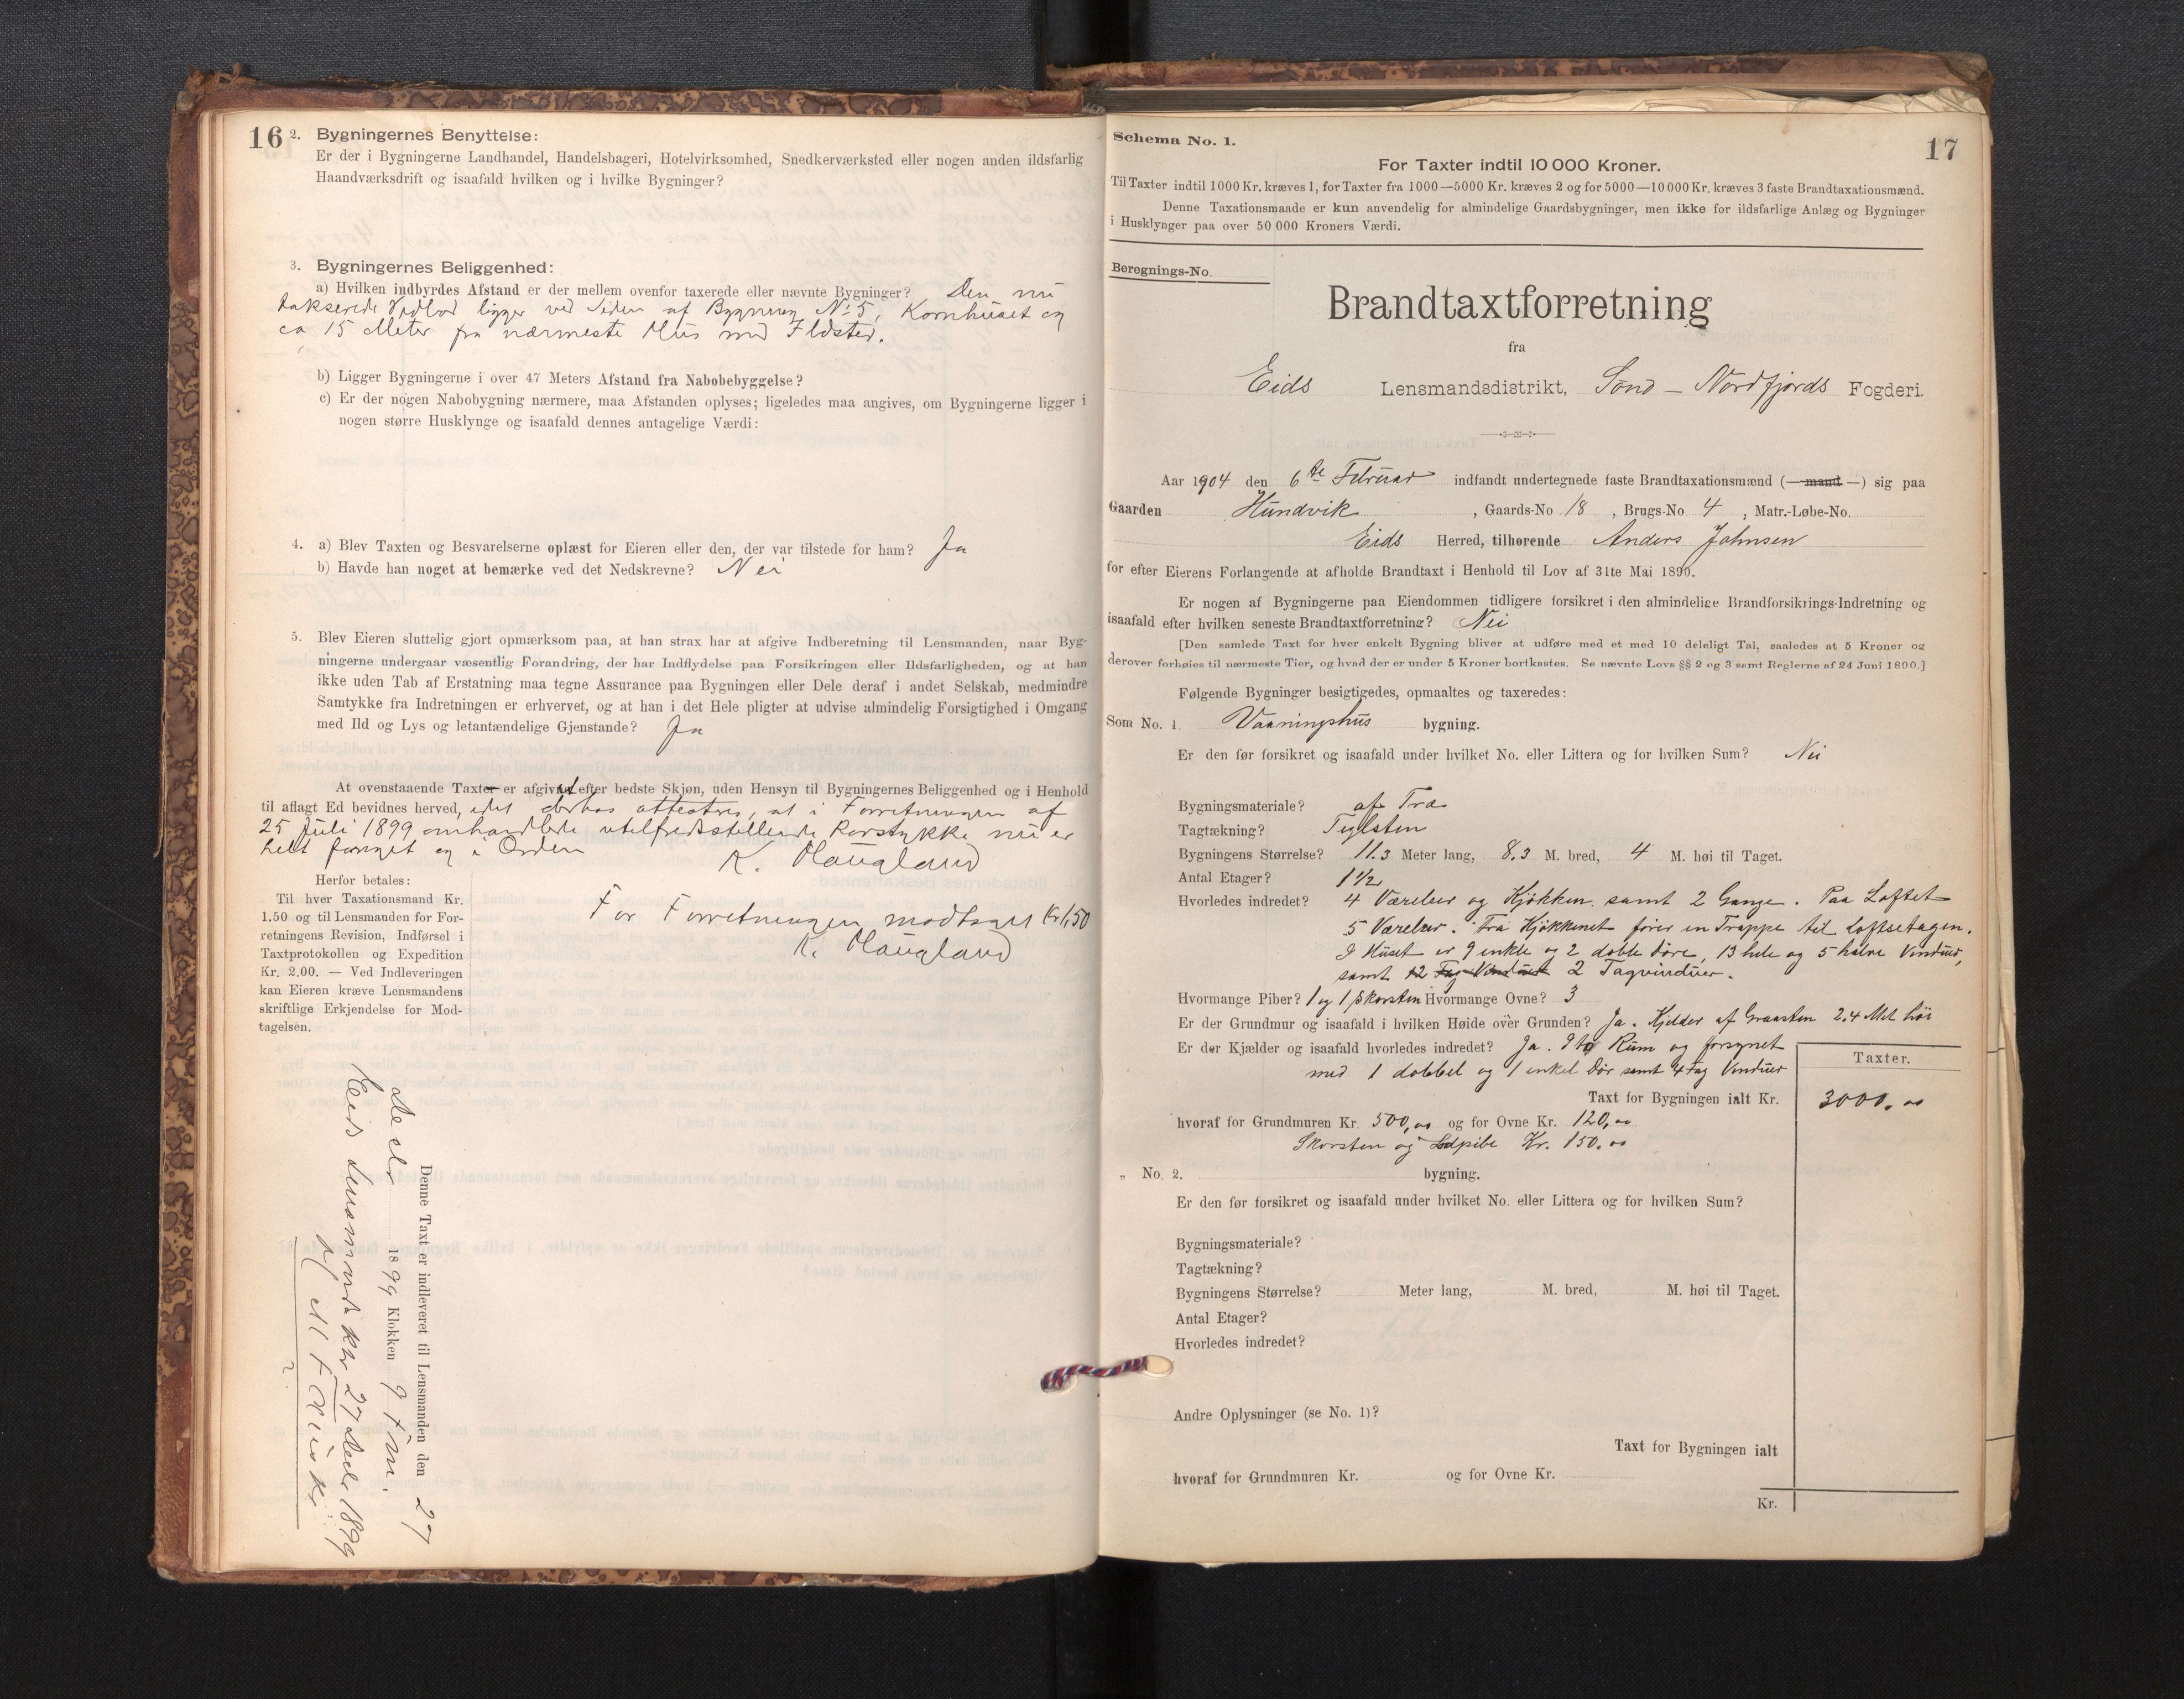 16
2. Bygningernes Benyttelse:
Er der i Bygningerne Landhandel, Handelsbageri, Hotelvirksomhed, Snedkerværksted eller nogen anden ildsfarlig
Haandværksdrift og isaafald hvilken og i hvilke Bygninger?
3. Bygningernes Beliggenhed:
a) Hvilken indbyrdes Afstand er der mellem ovenfor taxerede eller nævnte Bygninger? Den nu
takserede Vedbod ligger ved Siden af Bygning No 5, Kornhuset og
ca 15 Meter fra nærmeste Hus med Ildsted.
b) Ligger Bygningerne i over 47 Meters Afstand fra Nabobebyggelse?
c) Er der nogen Nabobygning nærmere, maa Afstanden oplyses; ligeledes maa angives, om Bygningerne ligger i
nogen større Husklynge og isaafald dennes antagelige Værdi:
4. a) Blev Taxten og Besvarelserne oplæst for Eieren eller den, der var tilstede for ham? Ja
b) Havde han noget at bemærke ved det Nedskrevne? Nei
5. Blev Eieren sluttelig gjort opmærksom paa, at han strax har at afgive Indberetning til Lensmanden, naar Byg-
ningerne undergaar væsentlig Forandring, der har Indflydelse paa Forsikringen eller Ildsfarligheden, og at han
ikke uden Tab af Erstatning maa tegne Assurance paa Bygningen eller Dele deraf i andet Selskab, medmindre
Samtykke fra Indretningen er erhvervet, og at han i det Hele pligter at udvise almindelig Forsigtighed i Omgang
med Ild og Lys og letantændelige Gjenstande? Ja
At ovenstaaende Taxter er afgivet efter bedste Skjøn, uden Hensyn til Bygningernes Beliggenhed og i Henhold
til aflagt Ed bevidnes herved, idet derhos attesteres, at i Forretningen af
25 Juli 1899 omhandlede utilfredsstillende Rørstykke nu er
helt fornyet og i Orden
K. Haugland
Herfor betales:
Til hver Taxationsmand Kr.
1.50 og til Lensmanden for For-
retningens Revision, Indførsel i
Taxtprotokollen og Expedition
Kr. 2.00. — Ved Indleveringen
kan Eieren kræve Lensmandens
skriftlige Erkjendelse for Mod-
tagelsen.
For Forretningen modtaget Kr 1,50
K. Haugland
Denne Taxt er indleveret til Lensmanden den 27
Decbr 1899 Klokken 9 Fm.
Eids Lensmandskr 27 Decbr 1899
17
Schema No. 1.
For Taxter indtil 10 000 Kroner.
Til Taxter indtil 1000 Kr. kræves 1, for Taxter fra 1000—5000 Kr. kræves 2 og for 5000—10 000 Kr. kræves 3 faste Brandtaxationsmænd.
Denne Taxationsmaade er kun anvendelig for almindelige Gaardsbygninger, men ikke for ildsfarlige Anlæg og Bygninger
i Husklynger paa over 50 000 Kroners Værdi.
Beregnings-No.
Brandtaxtforretning
fra
Eids Lensmandsdistrikt, Sønd — Nordfjords Fogderi.
Aar 1904 den 6te Februar indfandt undertegnede faste Brandtaxationsmænd (— mand —) sig paa
Gaarden Hundvik, Gaards-No 18, Brugs-No 4, Matr.-Løbe-No.
Eids Herred, tilhørende Anders Johnsen
for efter Eierens Forlangende at afholde Brandtaxt i Henhold til Lov af 31te Mai 1890.
Er nogen af Bygningerne paa Eiendommen tidligere forsikret i den almindelige Brandforsikrings-Indretning og
isaafald efter hvilken seneste Brandtaxtforretning? Nei
[Den samlede Taxt for hver enkelt Bygning bliver at udføre med et med 10 deleligt Tal, saaledes at 5 Kroner og
derover forhøies til nærmeste Tier, og hvad der er under 5 Kroner bortkastes. Se nævnte Lovs §§ 2 og 3 samt Reglerne af 24 Juni 1890.]
Følgende Bygninger besigtigedes, opmaaltes og taxeredes:
Som No. 1. Vaaningshus bygning.
Er den før forsikret og isaafald under hvilket No. eller Littera og for hvilken Sum? Nei
Bygningsmateriale? af Træ
Tagtækning? Teglsten
Bygningens Størrelse? 11.3 Meter lang, 8.3 M. bred, 4 M. høi til Taget.
Antal Etager? 1 1/2
Hvorledes indredet? 4 Værelser og Kjøkken samt 2 Gange. Paa Loftet
5 Værelser. Fra Kjøkkenet fører en Trappe til Loftsetagen.
I Huset er 9 enkle og 2 doble Døre, 13 hele og 5 halve Vinduer,
samt 12 Fag Vinduer 2 Tagvinduer.
Hvormange Piber? 1 og 1 Skorsten Hvormange Ovne? 3
Er der Grundmur og isaafald i hvilken Høide over Grunden? Ja. Kjelder af Graasten 2.4 Met høi
Er der Kjælder og isaafald hvorledes indredet? Ja. I to Rum og forsynet
med 1 dobbel og 1 enkel Dør samt 4 Fag Vinduer
Taxter.
Taxt for Bygningen ialt Kr. 3000,00
hvoraf for Grundmuren Kr. 500,00 og for Ovne Kr. 120,00
Skorsten og pibe Kr. 150.00
„ No. 2. bygning.
Er den før forsikret og isaafald under hvilket No. eller Littera og for hvilken Sum?
Bygningsmateriale?
Tagtækning?
Bygningens Størrelse? Meter lang, M. bred, M. høi til Taget.
Antal Etager?
Hvorledes indredet?
Andre Oplysninger (se No. 1)?
Taxt for Bygningen ialt
hvoraf for Grundmuren Kr. og for Ovne Kr.
Kr.